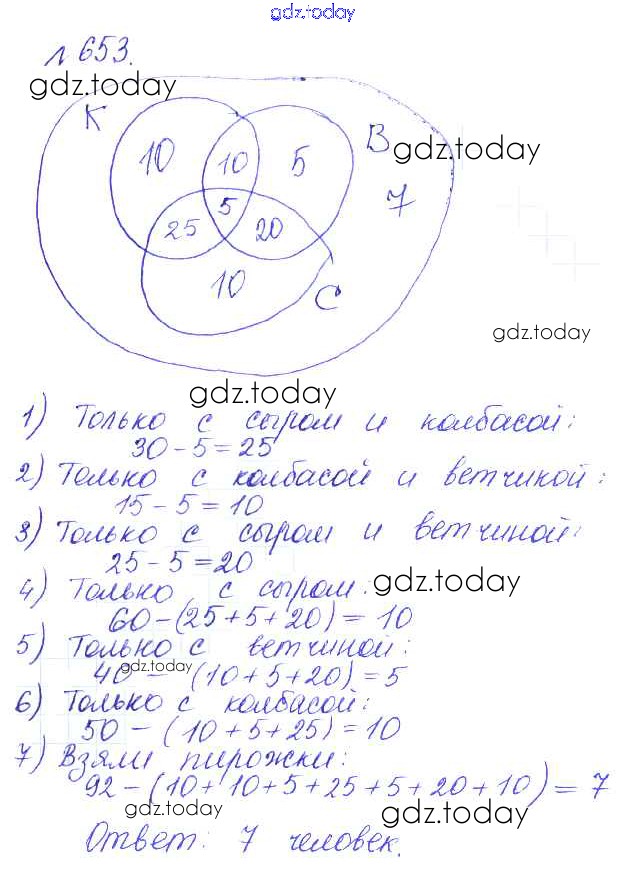 gdz.today
№ 653.
gdz.today
К
В gdz.today
10 10 5
7
5
25 20
10
С
gdz.today
gdz.today
1) Только с сыром и колбасой:
30 - 5 = 25
2) Только с колбасой и ветчиной:
15 - 5 = 10
3) Только с сыром и ветчиной:
25 - 5 = 20
gdz.today
4) Только с сыром:
60 - (25 + 5 + 20) = 10
5) Только с ветчиной:
gdz.today
40 - (10 + 5 + 20) = 5
6) Только с колбасой:
50 - (10 + 5 + 25) = 10
7) Взяли пирожки:
92 - (10 + 10 + 5 + 25 + 5 + 20 + 10) = 7
gdz.today gdz.today
Ответ: 7 человек.